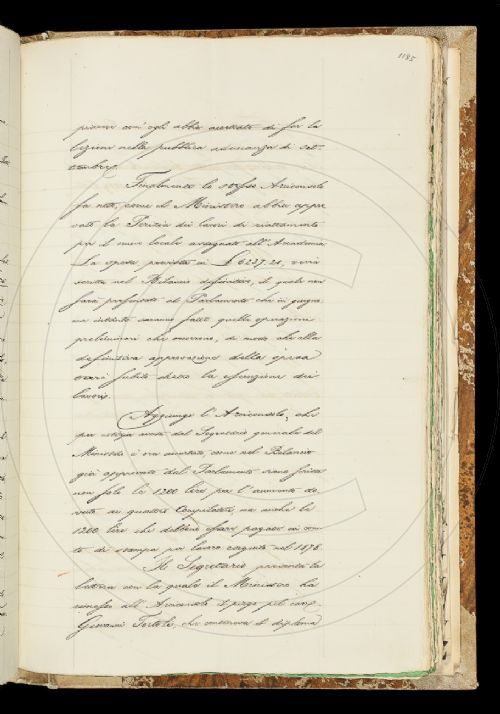 1185
ch' egli abbia accettato di far la
lezione nella pubblica adunanza di Set-
tembre.
Finalmente lo stesso Arciconsolo
fa noto, come il Ministero abbia appro
vato la Perizia dei lavori di riattamento
per il nuovo locale assegnato all' Accademia
La spesa prevista in £ 6237.21, verrà
scritta nel Bilancio definitivo, il quale non
sarà presentato al Parlamento che in giugno
ma intanto saranno fatte quelle operazioni
preliminari che occorrono, di modo che alla
definitiva approvazione della spesa
subito dietro la esecuzione dei
lavori.
Aggiunge l' Arciconsolo, che
per nota del Segretario generale del
Ministero è ora accertato, come nel Bilancio
già approvato dal Parlamento siano scritte
non solo le 1200 lire per l' aumento do
vuto ai quattro Compilatori, ma anche le
1200 lire che debbono esser pagate in con
to di stampa per lavoro eseguito nel 1876
Il Segretario presenta la
lettera con la quale il Ministero ha
rimesso all' Arciconsolo il piego pel comp.
Giovanni Tortoli, che conteneva il diploma